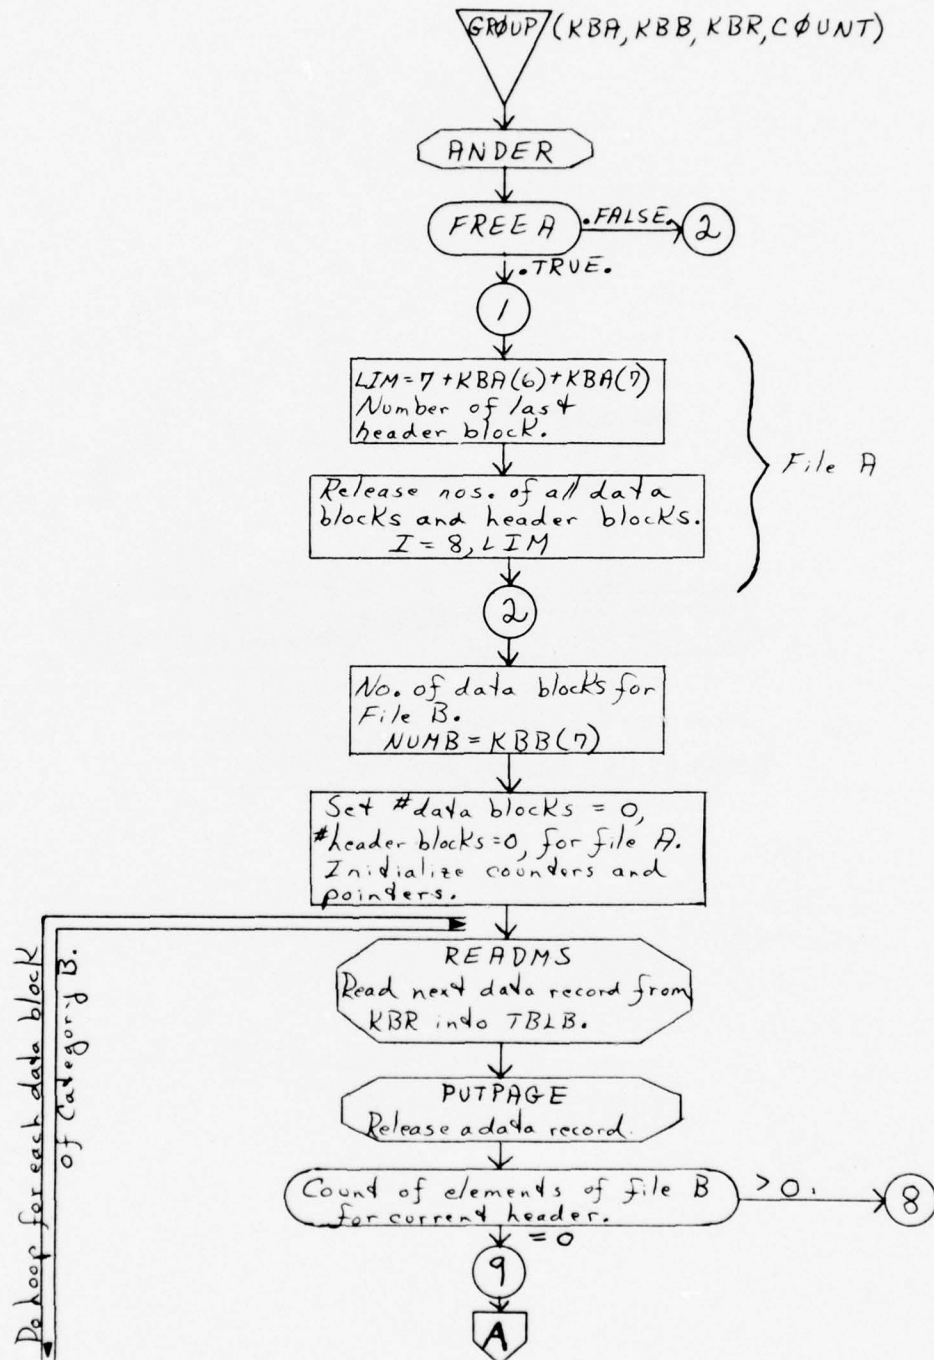 GRØUP (KBA, KBB, KBR, CØUNT)
ANDER
FREE A .FALSE. 2
.TRUE.
1
LIM=7+KBA(6)+KBA(7)
Number of last
header block.
File A
Release nos. of all data
blocks and header blocks.
I = 8, LIM
2
No. of data blocks for
File B.
NUMB = KBB(7)
Set #data blocks = 0,
#header blocks=0, for file A.
Initialize counters and
pointers.
READMS
Read next data record from
KBR into TBLB.
PUTPAGE
Release a data record.
Count of elements of file B >0. 8
for current header.
= 0
9
A
Do loop for each data block
of Category B.